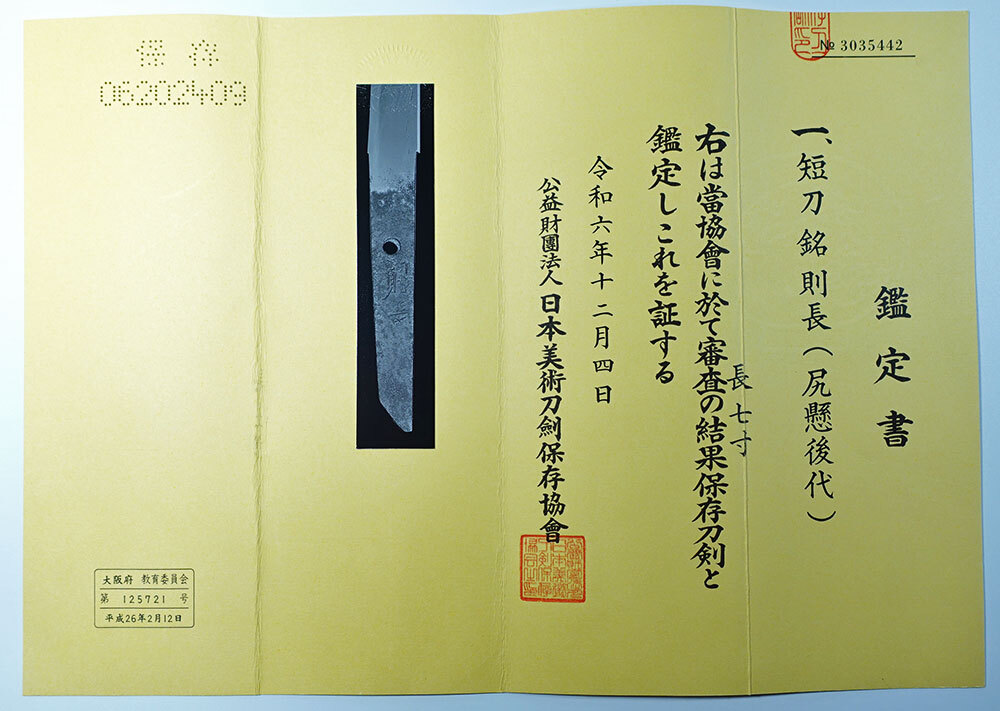 № 3035442
鑑定書
一、短刀 銘 則長(尻懸後代)
長 七寸
右は當協會に於て審査の結果保存刀剣と
鑑定しこれを証する
令和六年十二月四日
公益財團法人 日本美術刀劍保存協會
保存
06202409
則長
大阪府 教育委員会
第 125721 号
平成26年2月12日